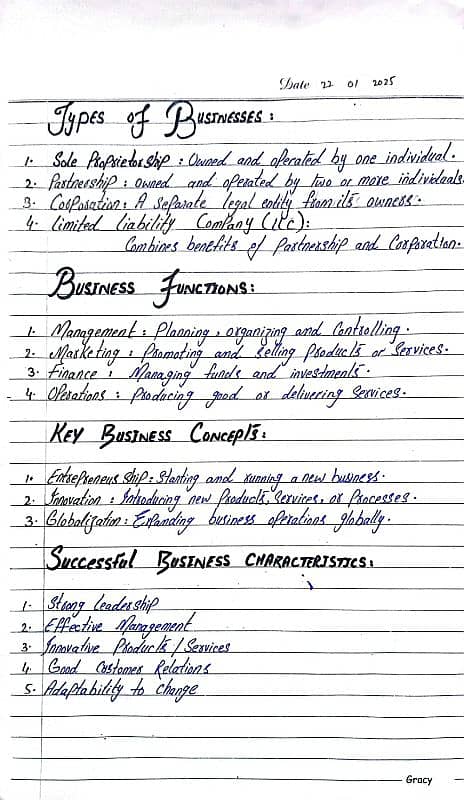 Date 22 01 2025
Types of Businesses:
1. Sole Proprietorship: Owned and operated by one individual.
2. Partnership: owned and operated by two or more individuals.
3. Corporation: A separate legal entity from its owness.
4. Limited Liability Company (llc):
Combines benefits of Partnership and Corporation.
Business Functions:
1. Management: Planning, organizing and Controlling.
2. Marketing: Promoting and selling Products or Services.
3. Finance: Managing funds and investments.
4. Operations: Producing good or delivering Services.
Key Business Concepts:
1. Entrepreneurship: Starting and running a new business.
2. Innovation: Introducing new Products, Services, or Processes.
3. Globalization: Expanding business operations globally.
Successful Business Characteristics:
1. Strong leadership
2. Effective Management
3. Innovative Products/Services
4. Good Customer Relations
5. Adaptability to change
Gracy